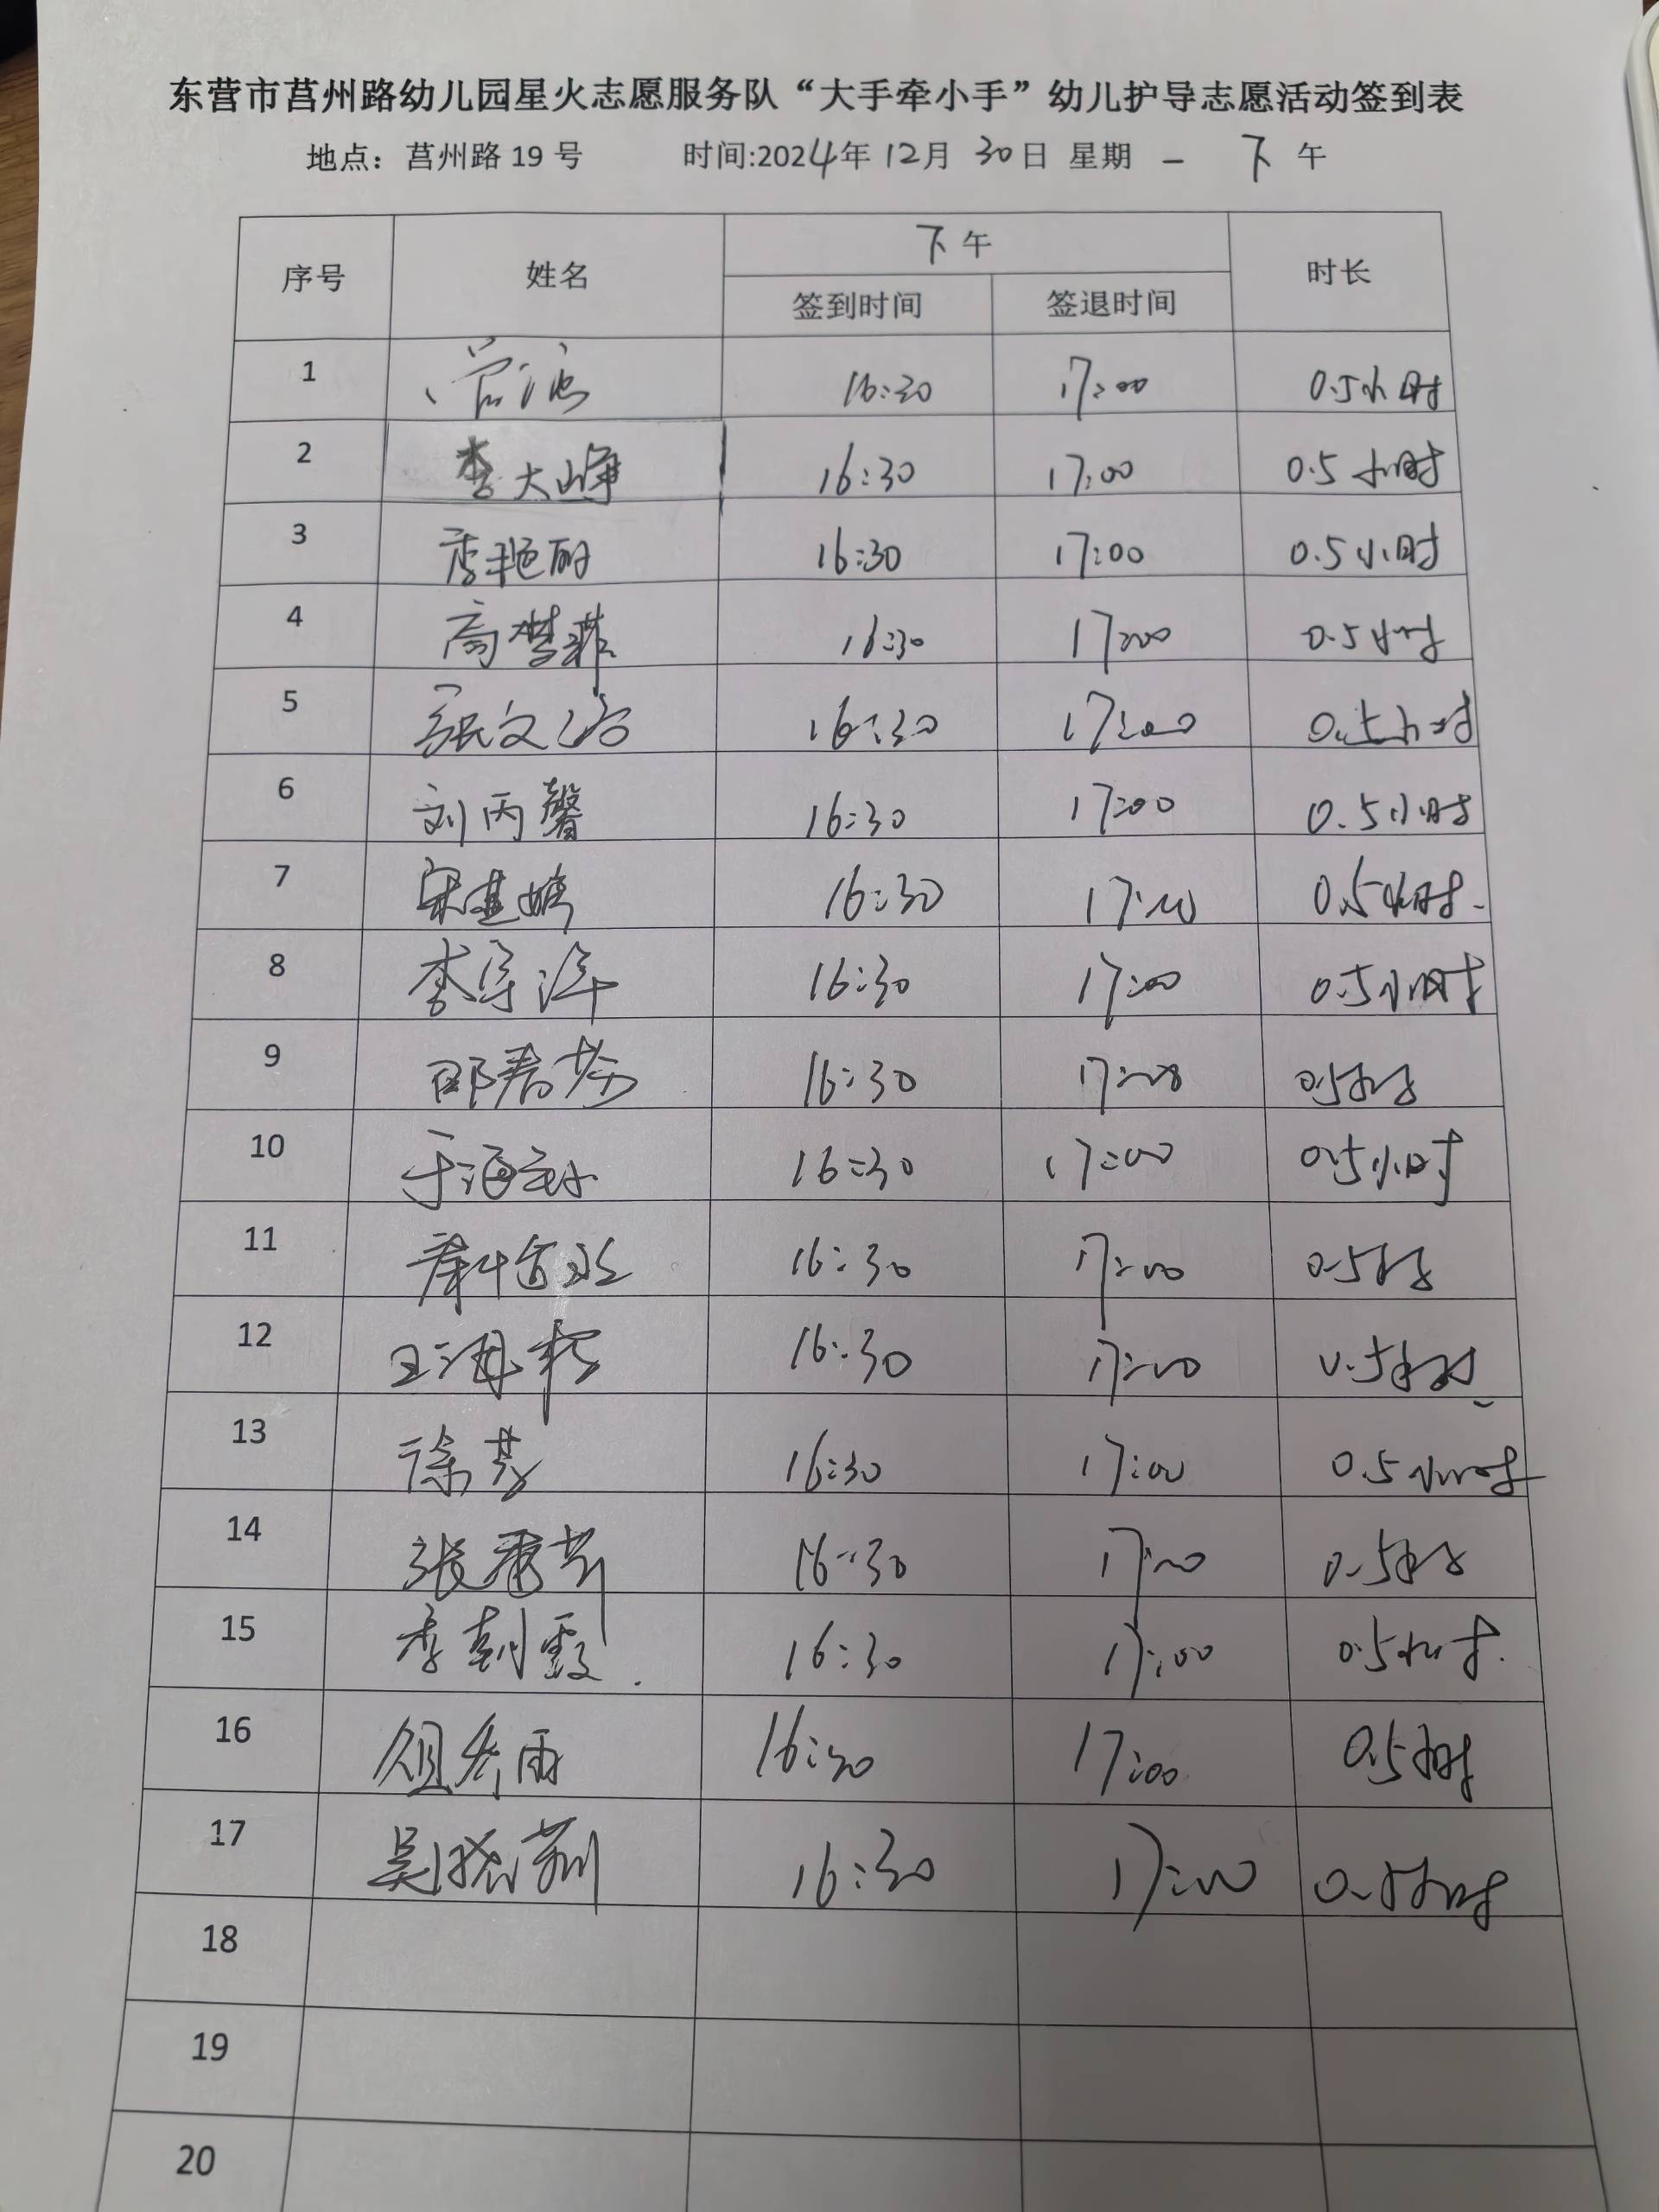 东营市莒州路幼儿园星火志愿服务队“大手牵小手”幼儿护导志愿活动签到表
地点：莒州路 19 号 时间:2024年 12月 30日 星期 一 下 午
序号 姓名 下 午 时长
签到时间 签退时间
1 16:30 17:00 0.5小时
2 李大峥 16:30 17:00 0.5小时
3 李艳丽 16:30 17:00 0.5小时
4 高梦菲 16:30 17:00 0.5小时
5 张文 16:30 17:00 0.5小时
6 刘丙馨 16:30 17:00 0.5小时
7 宋建婷 16:30 17:00 0.5小时.
8 李 16:30 17:00 0.5小时
9 邵春芬 16:30 17:00 0.5小时
10 于海 16:30 17:00 0.5小时
11 16:30 17:00 0.5小时
12 王海 16:30 17:00 0.5小时
13 徐 16:30 17:00 0.5小时
14 张 16:30 17:00 0.5小时
15 李朝霞. 16:30 17:00 0.5小时.
16 雨 16:30 17:00 0.5小时
17 吴晓莉 16:30 17:00 0.5小时
18
19
20